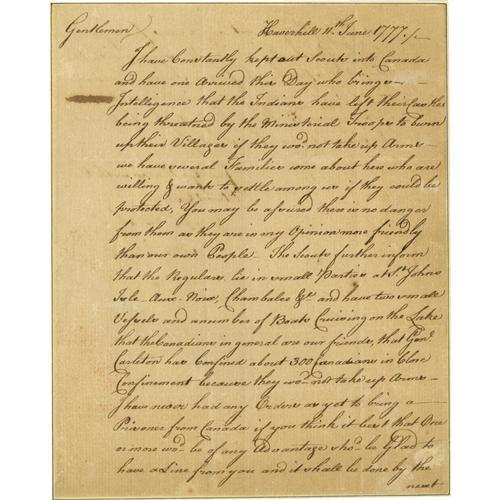 Gentlemen Haverhill 11th June 1777./.
I have Constantly kept out Scouts into Canada
and have one Arrived this Day who brings
Intelligence that the Indians have left their Castles
being threatned by the Ministerial Troops to burn
up their Villages if they wod. not take up Arms
we have several Families come about here who are
willing & want to settle among us if they could be
protected, You may be assured there is no danger
from them as they are in my Opinion more friendly
than our own People The Scouts further inform
that the Regulars lie in small Parties at St. Johns
Isle-Aux-Noix, Chamblee &c and have two small
Vessels and a number of Boats Cruising on the Lake
that the Canadians in general are our friends, that Genl.
Carleton has Confined about 300 Canadians in Close
Confinement because they wod. not take up Arms
I have never had any Orders as yet to bring a
Prisoner from Canada if you think it best that One
or more wod. be of any Advantage shod. be Glad to
have a Line from you and it shall be done by the
next